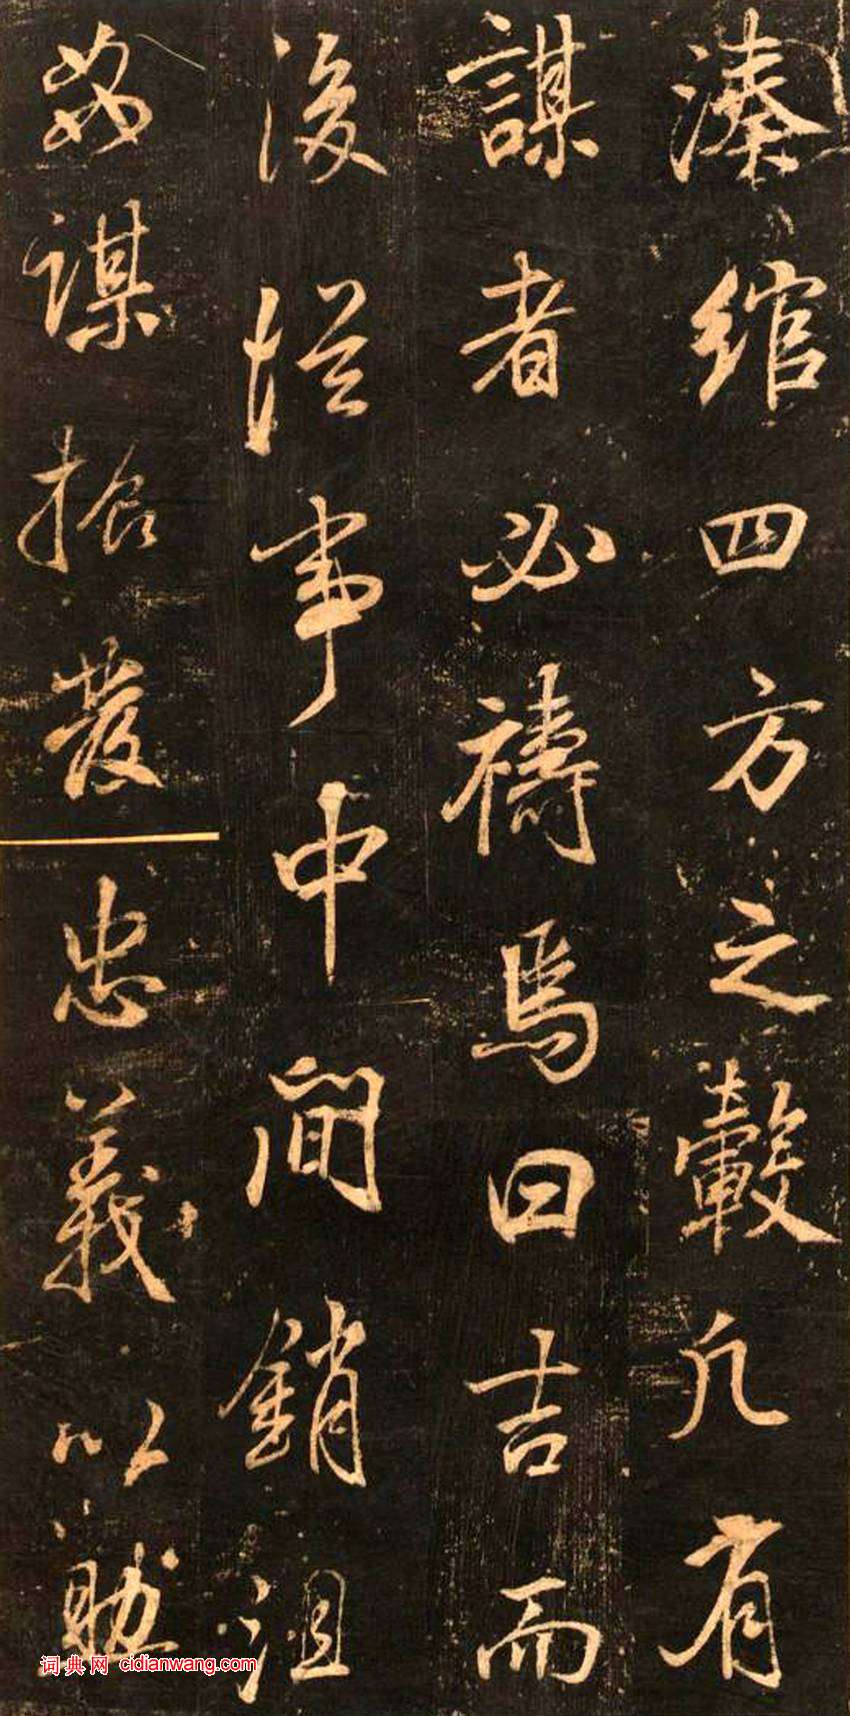 湊綰四方之轂凡有
謀者必禱焉曰吉而
後從事中間銷沮
姦謀振發忠義以助
词典网 cidianwang.com